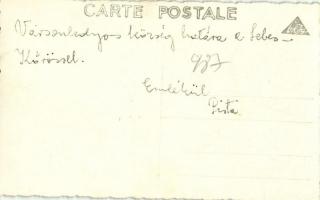 CARTE POSTALE
Vársonkolyos község határa a Sebes-
Körössel.
937
Emlékül
Pista